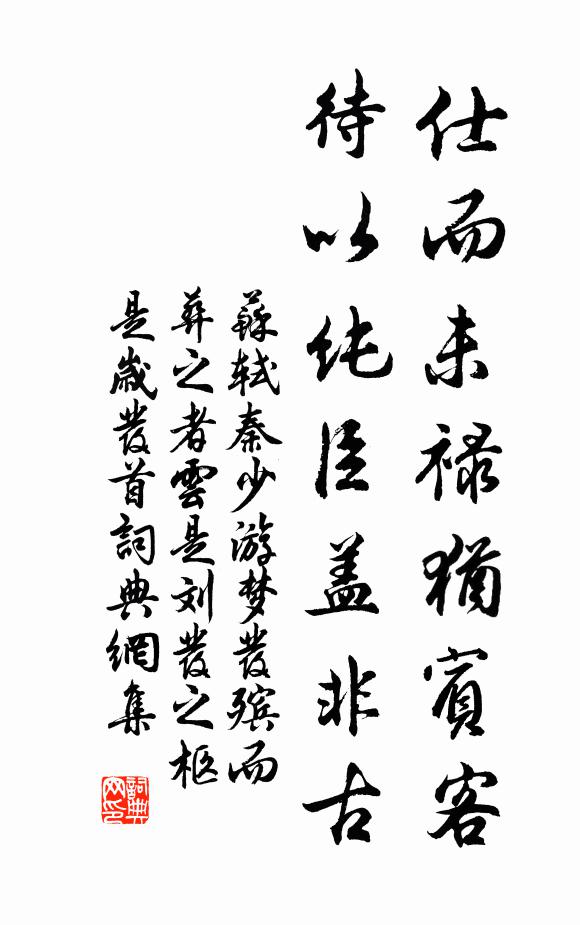 仕而未禄猶賓客
待以纯臣盖非古
蘇軾秦少游梦發殯而
葬之者雲是刘發之柩
是歲發首詞典網集
詞典网印